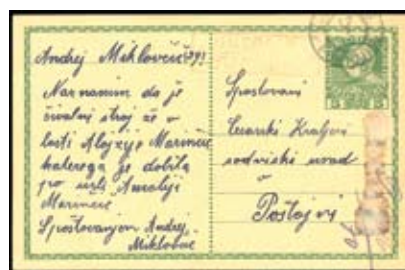 Andrej Miklovčič 291
Naznanim da je
šivalni stroj že v
lasti Alojzije Marinčič
katerega je dobila
po
Marinčič
Spoštovanjem Andrej
Miklovčič
Spoštovani
Cesarski Kraljevi
sodniski urad
v
Postojni
5 5